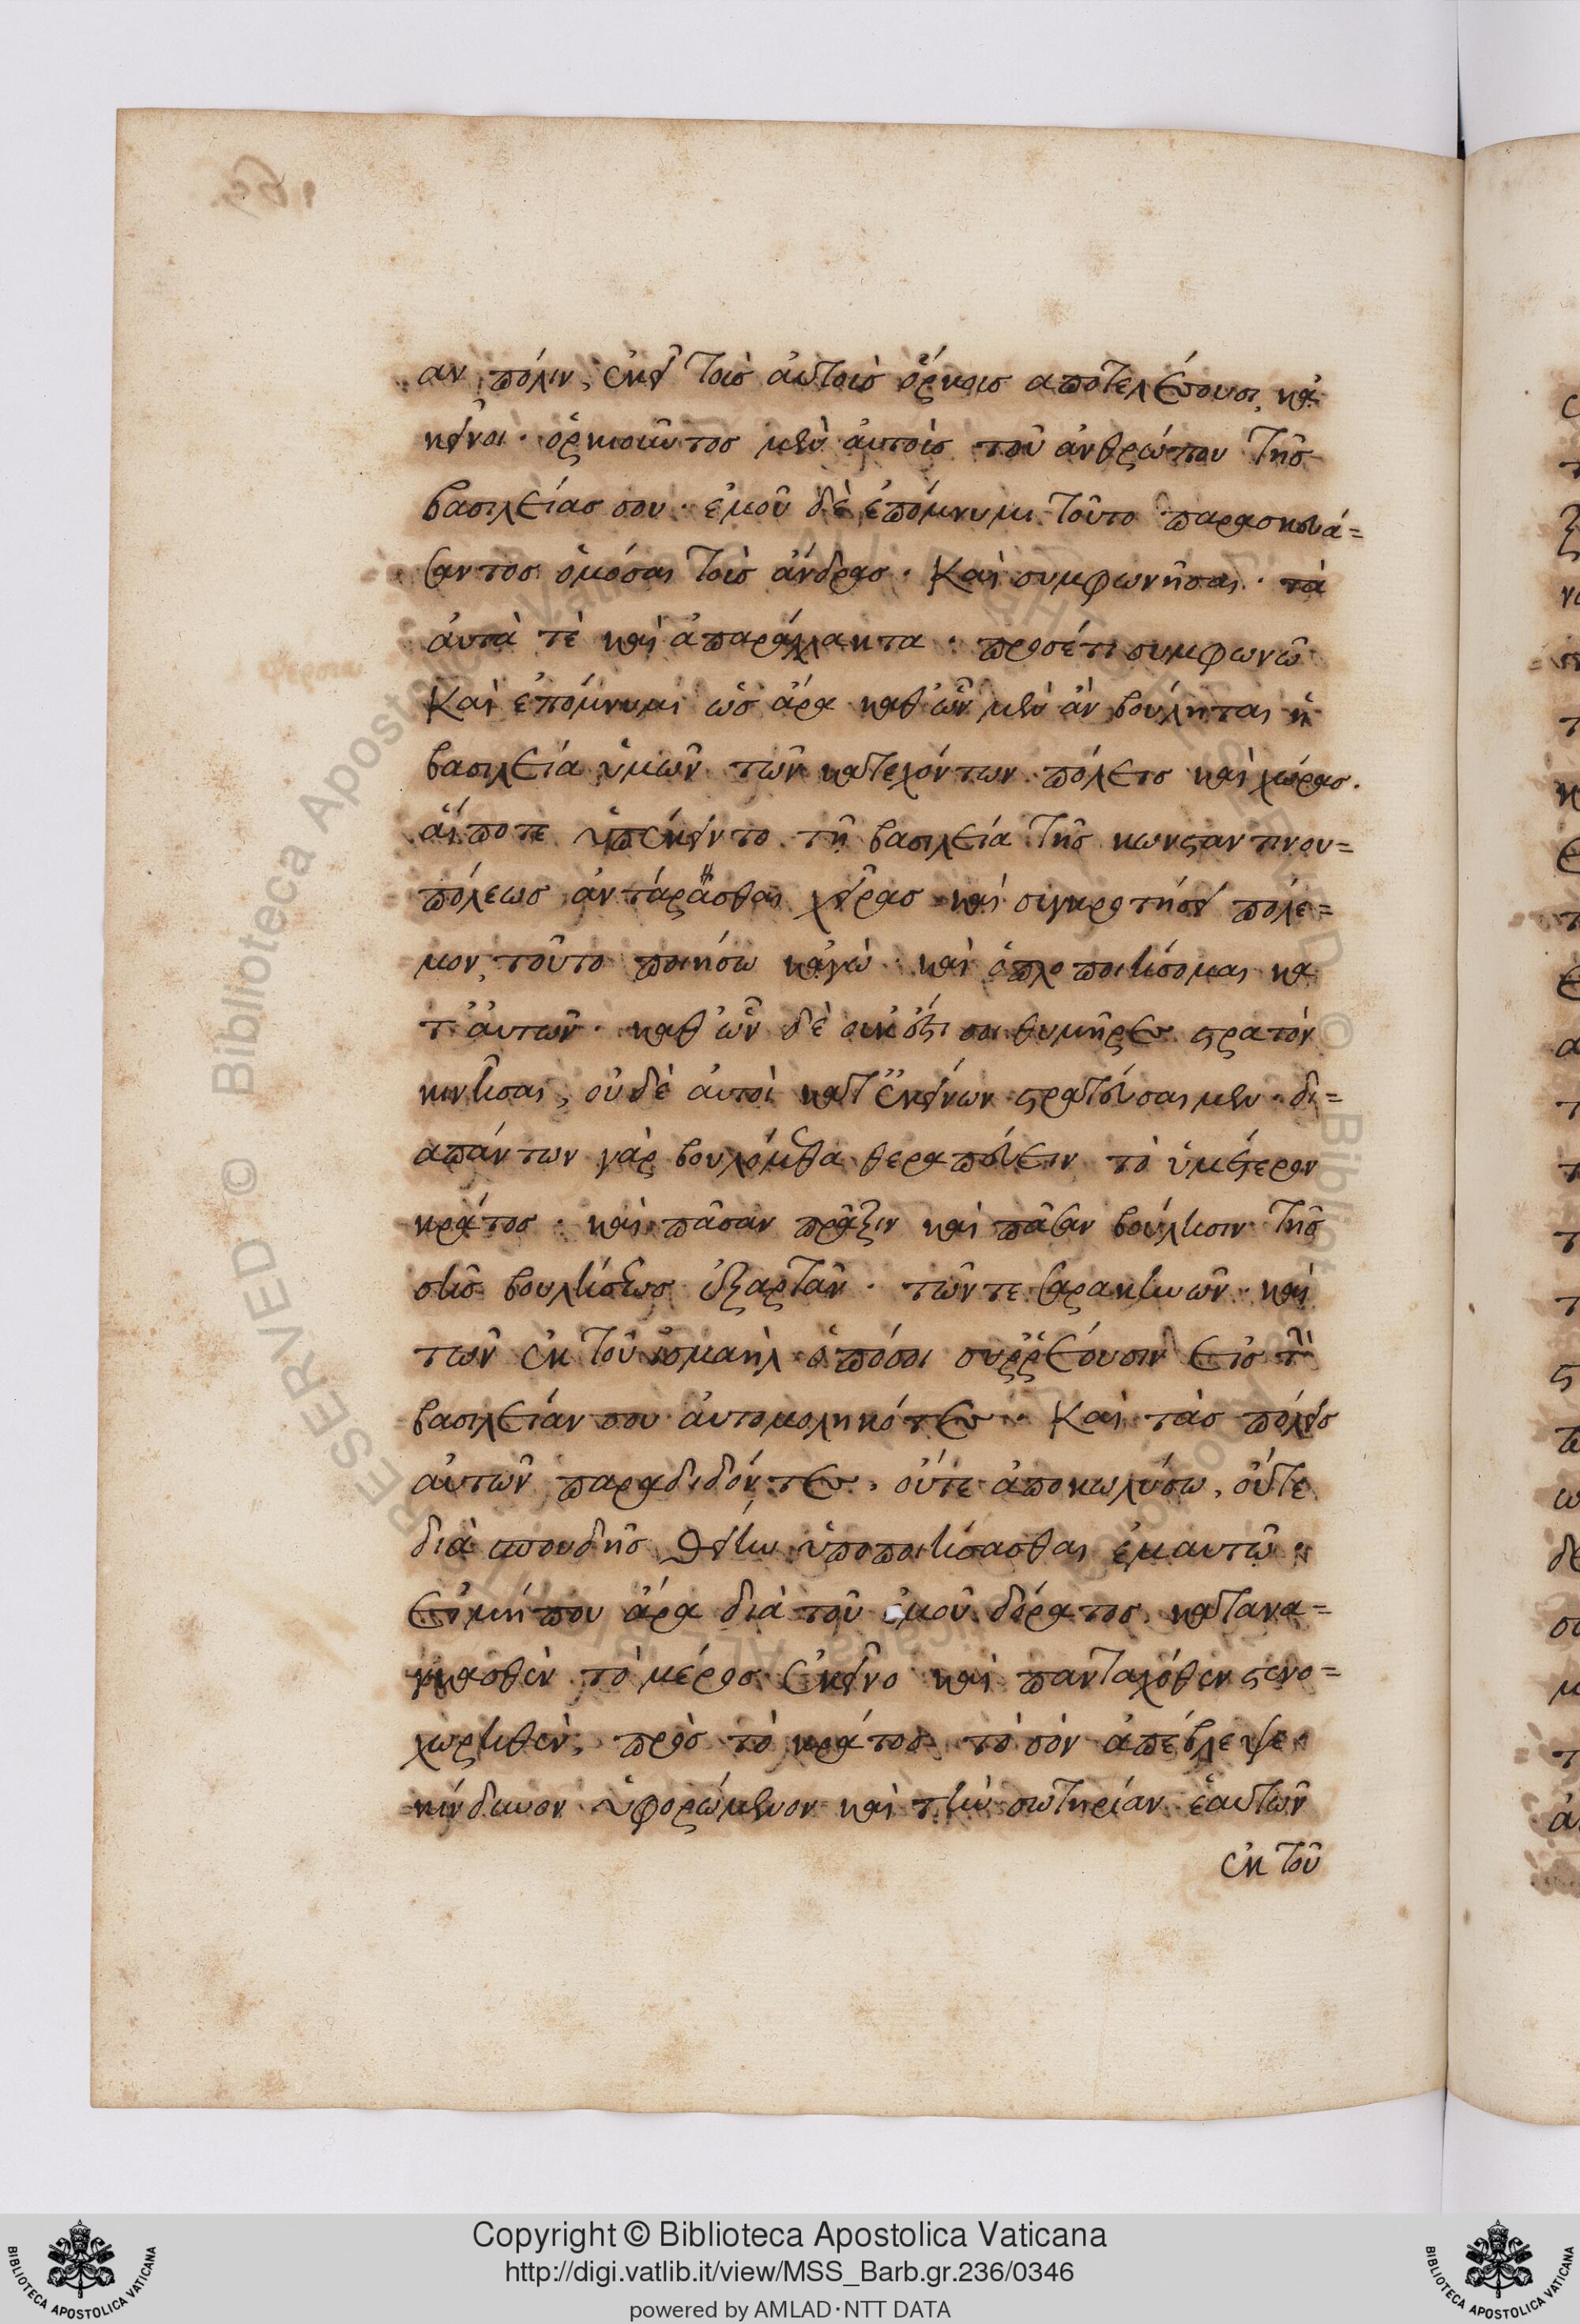 αν πόλιν, ἐκεῖ τοῖς αὐτοῖς ὅρκοις ἀποτελέσουσι κἀ
κεῖνοι· ὁρκιοῦντος μὲν αὐτοῖς τοῦ ἀνθρώπου τῆς
βασιλείας σου· ἐμοῦ δὲ ἐπόμνυμι τοῦτο παρασκευά=
σαντος ὀμόσαι τοῖς ἄνδρας· Καὶ συμφωνῆσαι· τὰ
αὐτὰ τὲ καὶ ἀπαράλλακτα· προσέτι συμφωνῶ
Καὶ ἐπόμνυμι ὡς ἄρα καθ' ὧν μὲν ἂν βούληται ἡ
βασιλεία ὑμῶν τῶν κατελόντων πόλεις καὶ χώρας·
αἵ ποτε ὑπέκειντο τῇ βασιλεία τῆς κωνσταντινου=
πόλεως ἀντάρασθαι χεῖρας καὶ συγκροτήσει πόλε=
μον, τοῦτο ποιήσω κἀγὼ· καὶ ὁπλοποιήσομαι κα
τ' αὐτῶν· καθ' ὧν δὲ οὐκ ἔστι σοι θυμῆρες στρατὸν
κινῆσαι, οὐδὲ αὐτοὶ κατ' ἐκείνων στρατεύσαιμεν· δι=
απάντων γὰρ βουλόμεθα θεραπεύειν τὸ ὑμέτερον
κράτος· καὶ πᾶσαν πρᾶξιν καὶ πᾶσαν βούλησιν τῆς
σῆς βουλήσεως ἐξαρτᾶν· τῶν τε σαρακηνῶν· καὶ
τῶν ἐκ τοῦ ἰσμαὴλ ὁπόσοι συῤῥέουσιν εἰς τὴν
βασιλείαν σου αὐτομοληκότες· Καὶ τὰς πόλεις
αὐτῶν παραδιδόντες, οὔτε ἀποκωλύσω, οὔτε
διὰ σπουδῆς θείην ὑποποιήσασθαι ἐμαυτῷ·
εἰ μήπου ἄρα διὰ τοῦ ἐμοῦ δόρατος κατανα=
γκασθὲν τὸ μέρος ἐκεῖνο καὶ πανταχόθεν στενο=
χωρηθὲν, πρὸς τὸ κράτος τὸ σὸν ἀπέβλεψε
κίνδυνον ὑφορώμενον καὶ τὴν σωτηρίαν ἑαυτῶν
ἐκ τοῦ
Copyright © Biblioteca Apostolica Vaticana
http://digi.vatlib.it/view/MSS_Barb.gr.236/0346
powered by AMLAD·NTT DATA